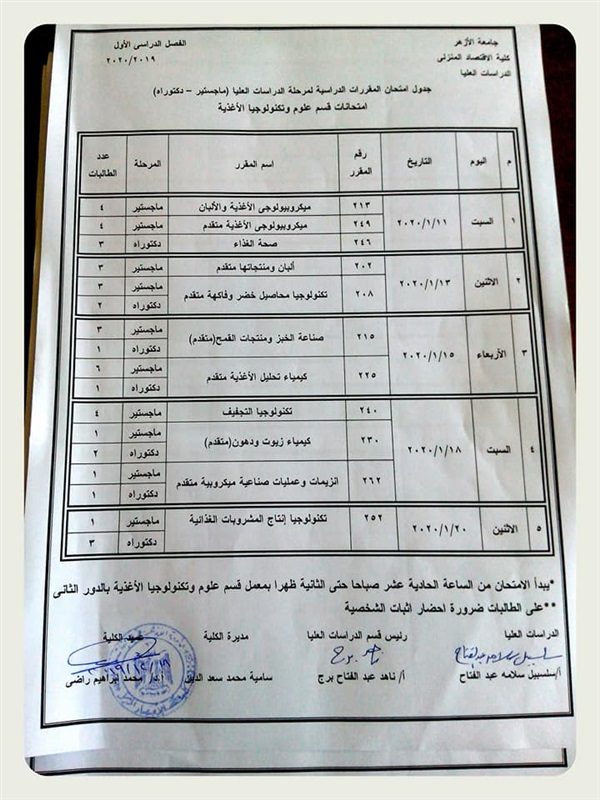 جامعة الأزهر
كلية الاقتصاد المنزلى
الدراسات العليا
الفصل الدراسى الأول
٢٠٢٠/٢٠١٩
جدول امتحان المقررات الدراسية لمرحلة الدراسات العليا (ماجستير – دكتوراه)
امتحانات قسم علوم وتكنولوجيا الأغذية
م اليوم التاريخ رقم المقرر اسم المقرر المرحلة عدد الطالبات
١ السبت ٢٠٢٠/١/١١ ٢١٣ ميكروبيولوجى الأغذية والألبان ماجستير ٤
٢٤٩ ميكروبيولوجى الأغذية متقدم ماجستير ٤
٢٤٦ صحة الغذاء دكتوراه ٣
٢ الاثنين ٢٠٢٠/١/١٣ ٢٠٢ ألبان ومنتجاتها متقدم ماجستير ٣
٢٠٨ تكنولوجيا محاصيل خضر وفاكهة متقدم ماجستير ٣
دكتوراه ٢
٣ الأربعاء ٢٠٢٠/١/١٥ ٢١٥ صناعة الخبز ومنتجات القمح(متقدم) ماجستير ٣
دكتوراه ١
٢٢٥ كيمياء تحليل الأغذية متقدم ماجستير ٦
دكتوراه ١
٤ السبت ٢٠٢٠/١/١٨ ٢٤٠ تكنولوجيا التجفيف ماجستير ٤
٢٣٠ كيمياء زيوت ودهون(متقدم) ماجستير ١
دكتوراه ٢
٢٦٢ انزيمات وعمليات صناعية ميكروبية متقدم ماجستير ١
دكتوراه ١
٥ الاثنين ٢٠٢٠/١/٢٠ ٢٥٢ تكنولوجيا إنتاج المشروبات الغذائية ماجستير ١
دكتوراه ٣
*يبدأ الامتحان من الساعة الحادية عشر صباحا حتى الثانية ظهرا بمعمل قسم علوم وتكنولوجيا الأغذية بالدور الثانى
**على الطالبات ضرورة احضار اثبات الشخصية
الدراسات العليا رئيس قسم الدراسات العليا مديرة الكلية عميد الكلية
أ/سلسبيل سلامه عبد الفتاح أ/ ناهد عبد الفتاح برج سامية محمد سعد أ.د/ محمد ابراهيم راضى